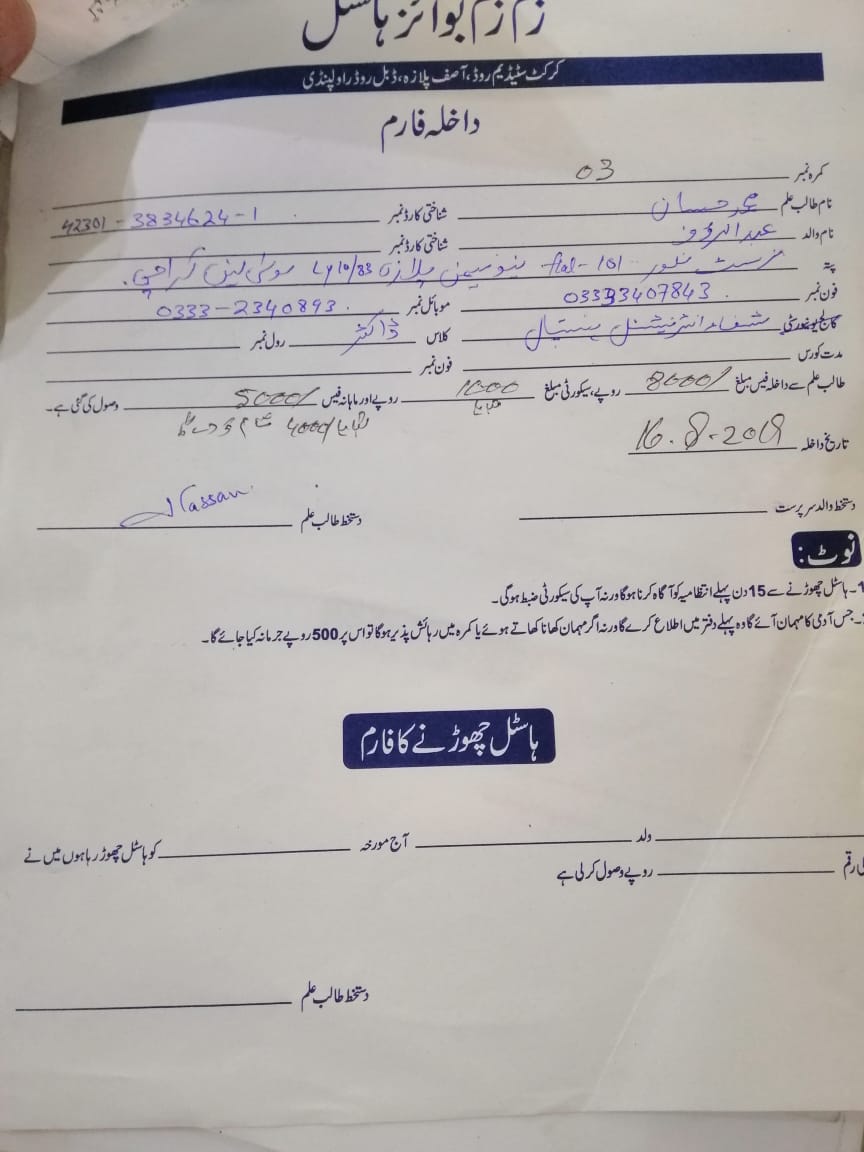 زم زم بوائز ہاسٹل
کرکٹ سٹیڈیم روڈ، آصف پلازہ، ڈبل روڈ راولپنڈی
داخلہ فارم
کمرہ نمبر 03
نام طالب علم محمد حسان شناختی کارڈ نمبر 42301-3834624-1
نام والد عبدالرؤف شناختی کارڈ نمبر
پتہ فرسٹ فلور flat-101 نیو میمن پلازہ Ly10/33 موسیٰ لین کراچی۔
فون نمبر 03333407843 موبائل نمبر 0333-2340893
کالج یونیورسٹی شفاء انٹرنیشنل ہسپتال کلاس ڈاکٹر رول نمبر
مدت کورس فون نمبر
طالب علم سے داخلہ فیس مبلغ 8000/ روپے، سیکورٹی مبلغ 1000 روپے اور ماہانہ فیس 5000/ وصول کی گئی ہے۔
بقایا 4000/
تاریخ داخلہ 16.8.2019
دستخط والد سرپرست دستخط طالب علم Hassan
نوٹ:
1۔ ہاسٹل چھوڑنے سے 15 دن پہلے انتظامیہ کو آگاہ کرنا ہوگا ورنہ آپ کی سیکورٹی ضبط ہوگی۔
جس آدمی کا مہمان آئے گا وہ پہلے دفتر میں اطلاع کرے گا ورنہ اگر مہمان کھانا کھاتے ہوئے یا کمرہ میں رہائش پذیر ہوگا تو اس پر 500 روپے جرمانہ کیا جائے گا۔
ہاسٹل چھوڑنے کا فارم
ولد آج مورخہ کو ہاسٹل چھوڑ رہا ہوں میں نے
رقم روپے وصول کر لی ہے
دستخط طالب علم